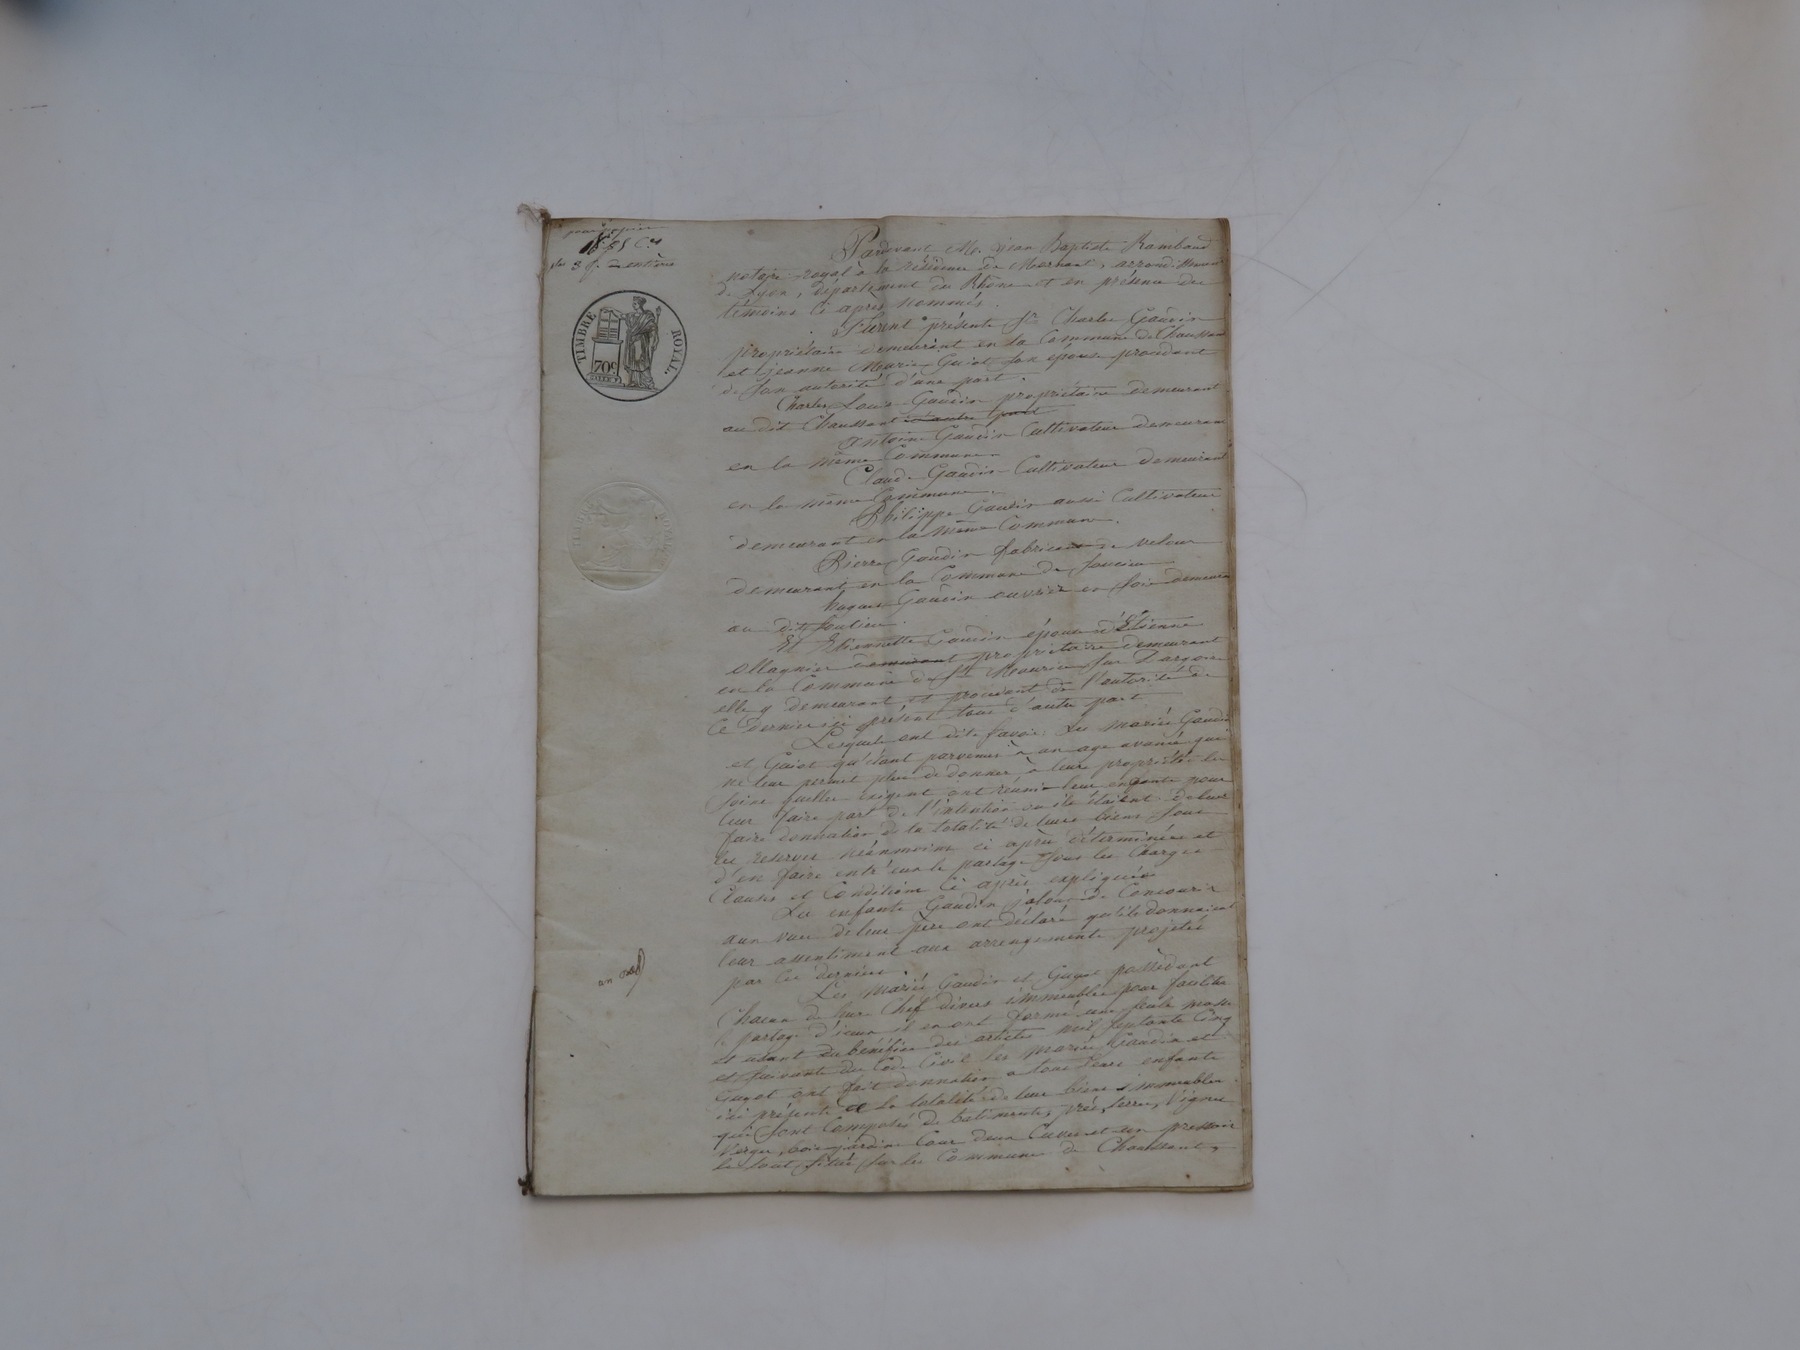 TIMBRE ROYAL.
70c
Pardevant Me. Jean Baptiste Rambaud
notaire royal à la résidence de Mornant, arrondissement
de Lyon, département du Rhône et en présence des
témoins ci après nommés.
Furent présents Sr. Charles Gaudin
propriétaire demeurant en la Commune de Chaussan
et Jeanne Marie Guiot son épouse procédant
de son autorité d'une part.
Charles Louis Gaudin propriétaire demeurant
au dit Chaussant d'autre part
Antoine Gaudin Cultivateur demeurant
en la même Commune
Claude Gaudin Cultivateur demeurant
en la même Commune.
Philippe Gaudin aussi Cultivateur
demeurant en la même Commune.
Pierre Gaudin fabricant de velour
demeurant en la Commune de Soucieu
hugues Gaudin ouvrier en soie demeurant
au dit Soucieu.
Et Etiennette Gaudin épouse d'Etienne
Ollagnier demeurant propriétaire demeurant
en la Commune de St. Maurice sur Dargoire
elle y demeurant et procédant de l'autorité de
Ce dernier ici présent tous d'autre part
Lesquels ont dit savoir Les mariés Gaudin
et Guiot qu'étant parvenus à un age avancé qui
ne leur permet plus de donner à leur propriétés les
soins quelles exigent ont réuni leur enfants pour
leur faire part de l'intention ou ils étaient de leur
faire donnation de la totalité de leurs biens sous
les reserves néanmoins ci après déterminées et
d'en faire entr'eux le partage sous les Charges
Clauses et Conditions Ci après expliquées
Les enfants Gaudin jaloux de Concourir
aux vues de leur père ont déclaré qu'ils donnaient
leur assentiment aux arrengements projetés
par Ces derniers.
Les mariés Gaudin et Guyot possédant
Chacun de leurs Chef divers immeubles pour faciliter
le partage d'iceux ils en ont formé une seule masse
et usant du bénéfice des articles mil septante Cinq
et suivants du Code Civil les mariés Gaudin et
Guyot ont fait donnation à tous leurs enfants
ici présents de la totalité de leur biens immeubles
qui sont Composés de batiments, prés, terres, Vignes
Verger, bois jardin Cour deux Cuves et un pressoir
le tout situé sur les Commune de Chaussant,